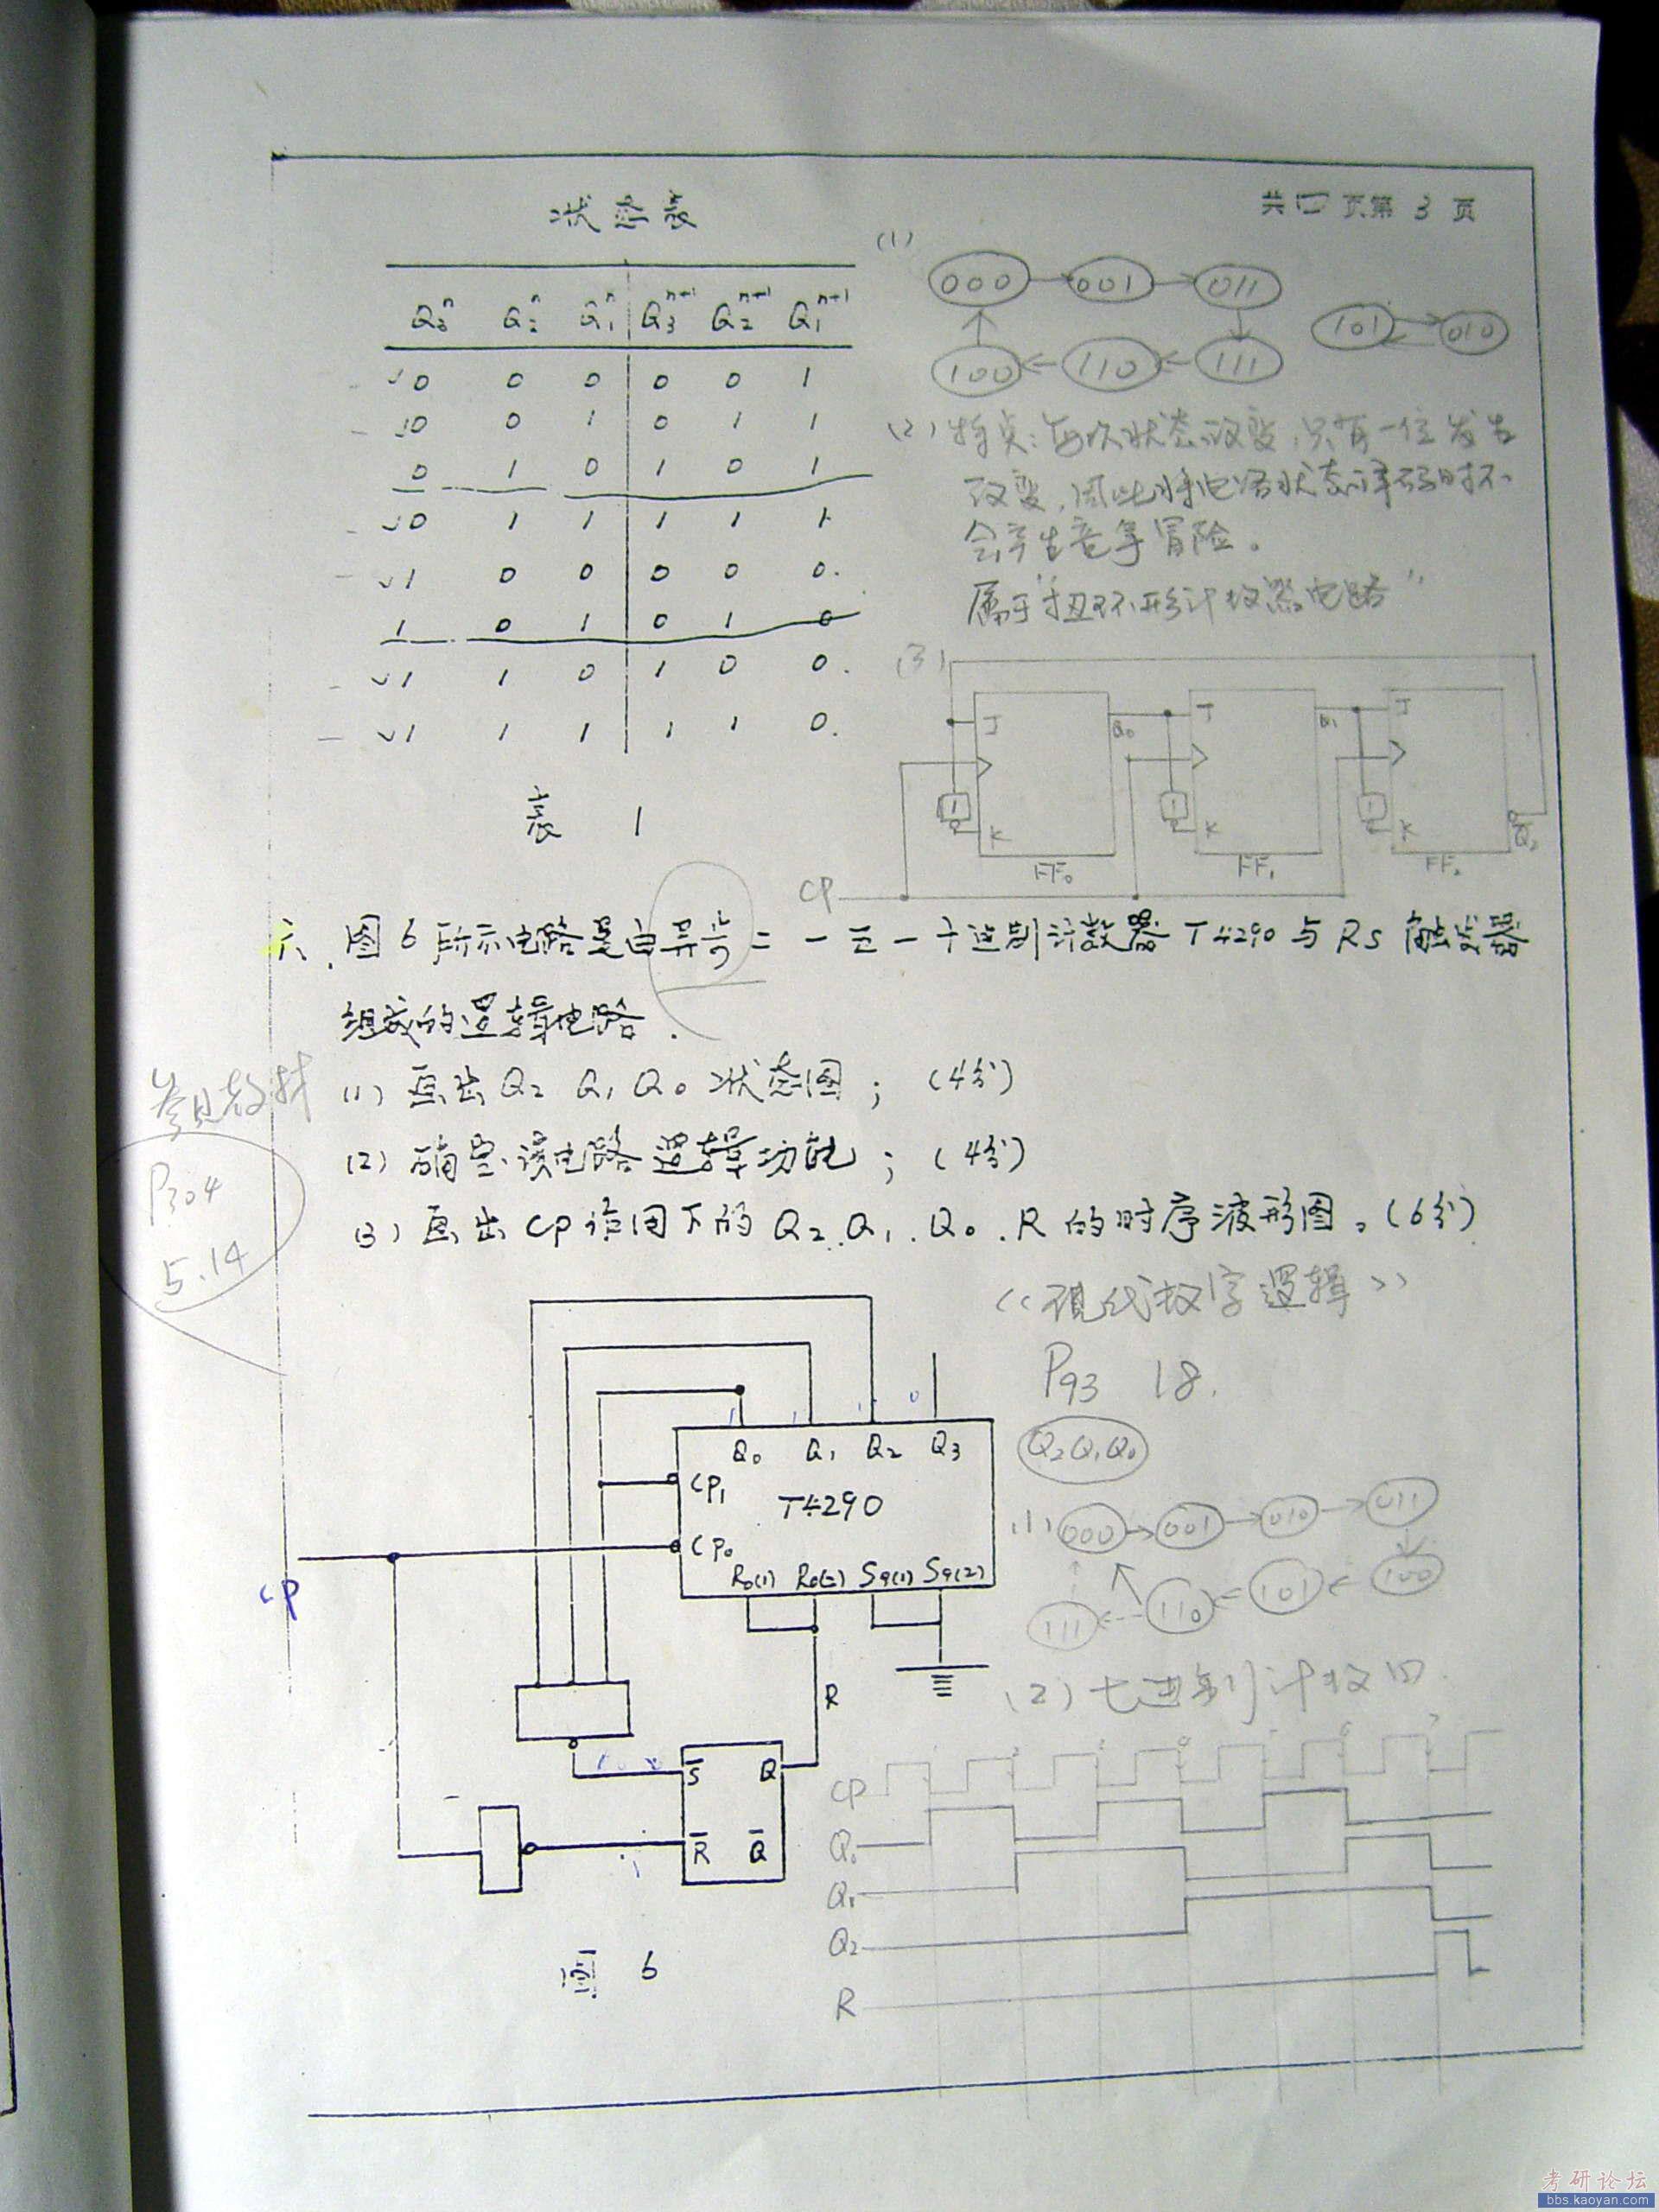 共四页第3页
状态表
Q3^n Q2^n Q1^n Q3^n+1 Q2^n+1 Q1^n+1
0 0 0 0 0 1
0 0 1 0 1 1
0 1 0 1 0 1
0 1 1 1 1 1
1 0 0 0 0 0
1 0 1 0 1 0
1 1 0 1 0 0
1 1 1 1 1 0
表 1
(1)
000 001 011
101 010
100 110 111
(2) 特点:每次状态改变,只有一位发生
改变,因此将电路状态译码时不
会产生竞争冒险。
属于"扭环形计数器电路"
(3)
J Q0 J Q1 J
1 K 1 K 1 K Q2
FF0 FF1 FF2
CP
六、图6所示电路是由异步二一五一十进制计数器T4290与RS触发器
组成的逻辑电路.
(1) 画出Q2 Q1 Q0状态图; (4分)
(2) 确定该电路逻辑功能; (4分)
(3) 画出CP作用下的Q2、Q1、Q0、R的时序波形图。(6分)
参见教材
P304
5.14
《现代数字逻辑》
P93 18.
Q0 Q1 Q2 Q3
CP1 T4290
CP0
R0(1) R0(2) S9(1) S9(2)
CP
R
S Q
R Q
图 6
Q2Q1Q0
(1) 000 001 010 011
111 110 101 100
(2) 七进制计数
CP
Q0
Q1
Q2
R
考研论坛
bbs.kaoyan.com